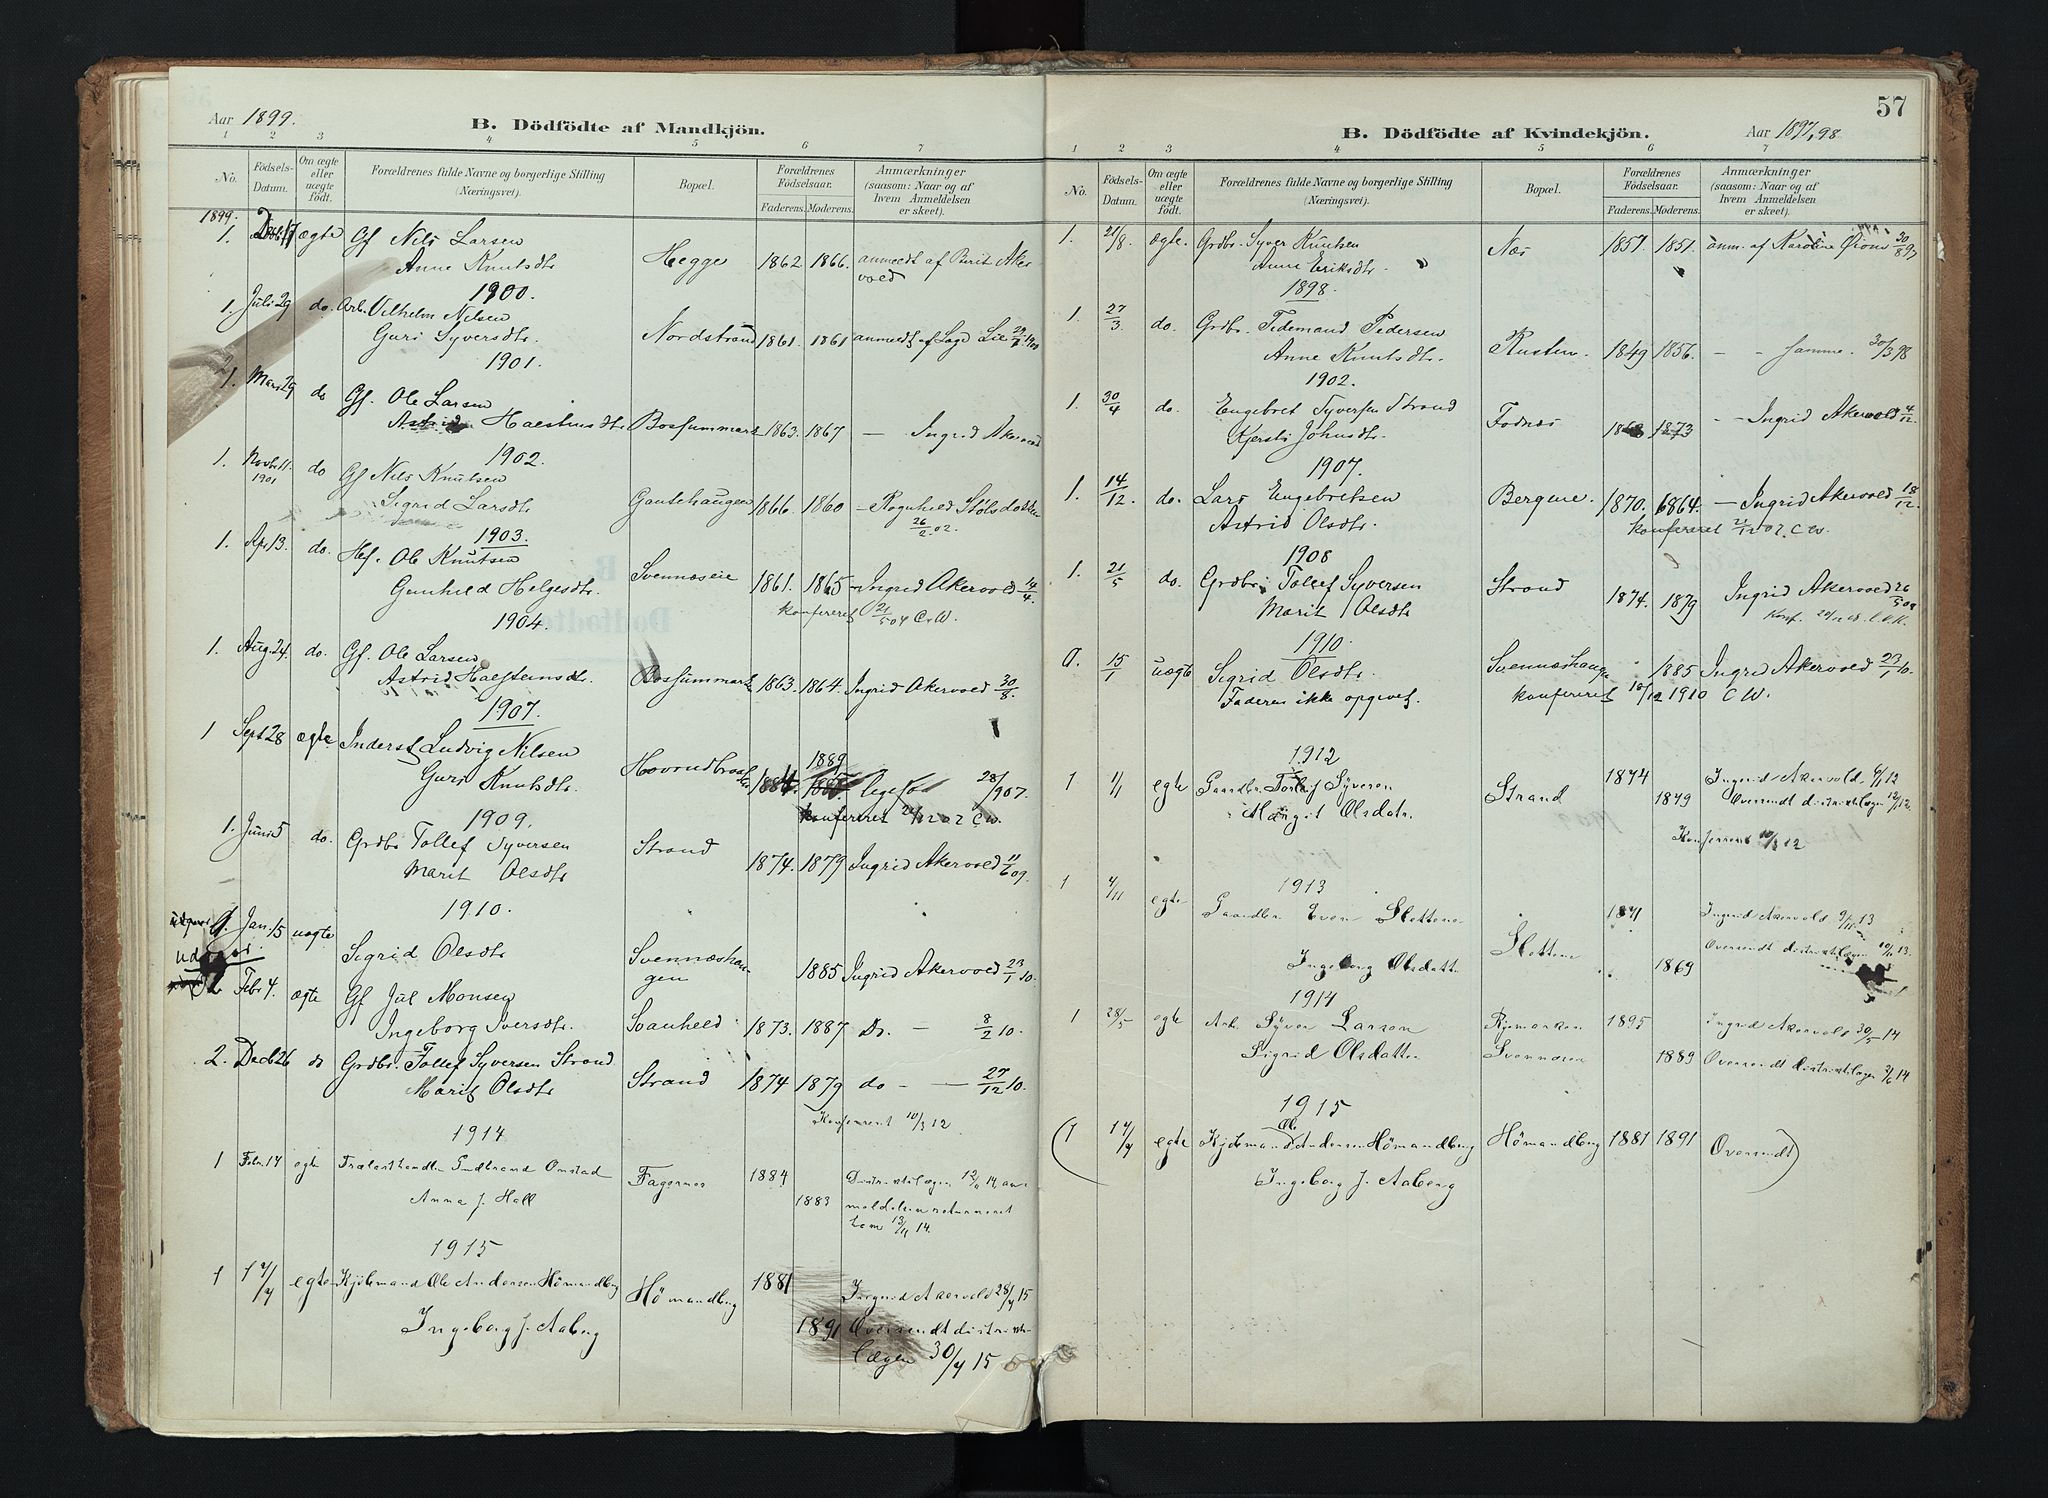 Aar 1899.
B. Dödfödte af Mandkjön.
1 2 3 4 5 6 7
No.
Födsels-Datum.
Om ægte eller uægte födt.
Forældrenes fulde Navne og borgerlige Stilling (Næringsvei).
Bopæl.
Forældrenes Födselsaar.
Faderens. Moderens.
Anmærkninger (saasom: Naar og af hvem Anmeldelsen er skeet).
1899.
1. ægte Gf Nils Larsen Hegge 1862 1866. anmeldt af Berit Aker-
Anne Knutsdtr. vold
1900.
1. Juli 29 do. Arb. Vilhelm Nilsen Nordstrand 1861. 1861 anmeldt af
Guri Syversdtr.
1901.
1. Mars 29 do Gf. Ole Larsen
Astrid Haltensdtr. 1863. 1867 — Ingrid Akervold
1902.
1. Novbr 11. 1901 do Gf Nils Knutsen
Sigrid Larsdtr. Gautehaugen 1866. 1860 — Ragnhild
26/2.02.
1903.
1. Apr. 13. do. Ole Knutsen
Gunhild Helgesdtr. Svennæseie 1861. 1865 — Ingrid Akervold 14/4.
konfereret 21/5 04 C.W.
1904.
1. Aug. 24. do. Gf. Ole Larsen
Astrid 1863. 1864. Ingrid Akervold 30/8.
1907.
1 Sept 28 ægte Inderst Ludvig Nilsen 1889
Guri Knutsdtr. 28/907.
konfereret C.W.
1909.
1. Juni 5 do. Grdbr Tollef Syversen Strand
Marit Olsdtr. 1874. 1879 Ingrid Akervold 11/6 09.
1910.
Jan. 15 uægte
Sigrid Olsdtr. Svennæshau-gen 1885 Ingrid Akervold 23/1 10.
udgaar
Febr 4. ægte Gf Jul Monsen
Ingeborg Iversdtr. 1873. 1887 Do. — 8/2 10.
2. Decb 26 do Grdbr. Tollef Syversen Strand
Marit Olsdtr. Strand 1874 1879 do — — 27/12 10.
Konfereret 10/3 12
1914
1 Febr. 14 egte Trælasthandler Gudbrand Onstad Fagernes 1884
Anna J. Hall 1883
1915
1 egte Kjöbmand Ole Andersen Hömandberg Hömandberg 1881 Ingrid Akervold 28/4 15
Ingeborg J. Aaberg 1891 Oversendt distrikts-
lægen 30/4 15
57
B. Dödfödte af Kvindekjön.
Aar 1897, 98.
1 2 3 4 5 6 7
No.
Födsels-Datum.
Om ægte eller uægte födt.
Forældrenes fulde Navne og borgerlige Stilling (Næringsvei).
Bopæl.
Forældrenes Födselsaar.
Faderens. Moderens.
Anmærkninger (saasom: Naar og af hvem Anmeldelsen er skeet).
1. 21/8. ægte. Grdbr. Syver Knutsen Næs 1857. 1851. anm. af Karoline 30/8 97
Anne Eriksdtr.
1898.
1. 27/3 do. Grdbr. Tidemand Pedersen
Anne Knutsdtr. Rusten. 1849 1856. — — samme. 30/3 98
1902.
1. 30/4 do. Engebret Syversen Strand
Kjersti Johnsdtr. Fodnæs 1873 — Ingrid Akervold 4/12.
1907.
1. 14/12. do. Lars Engebretsen Bergene. 1870. 1864. — Ingrid Akervold 18/12.
Astrid Olsdtr. konfereret C.W.
1908
1. 21/5 do. Grdbr. Tollef Syversen Strand 1874. 1879 Ingrid Akervold 26/5 08
Marit Olsdtr.
1910.
15/1 uægte Sigrid Olsdtr. Svennæshaugen 1885 Ingrid Akervold 23/1 10.
Faderen ikke opgivet. konfereret 10/12 1910 C W.
1912
1 1/1 egte Gaardbr. Syversen Strand 1874 Ingrid Akervold 6/1 12
Margit Olsdatr. 1879 Oversendt distriktslægen 12/1 12.
Konfereret 10/3 12
1913
1 4/11 egte Gaardbr. Even Slettene Slettene 1871 Ingrid Akervold 9/11 13
Ingeborg Olsdatter 1869 Oversendt distriktslægen 10/11 13.
1914
1 28/5 egte Arb. Syver Larsen 1895 Ingrid Akervold 30/5 14
Sigrid Olsdatter Svennæsen 1889 Oversendt distriktslægen 2/6 14
1915
(1 17/4 egte Kjöbmand Ole Andersen Hömandberg Hömandberg 1881 1891 Oversendt)
Ingeborg J. Aaberg